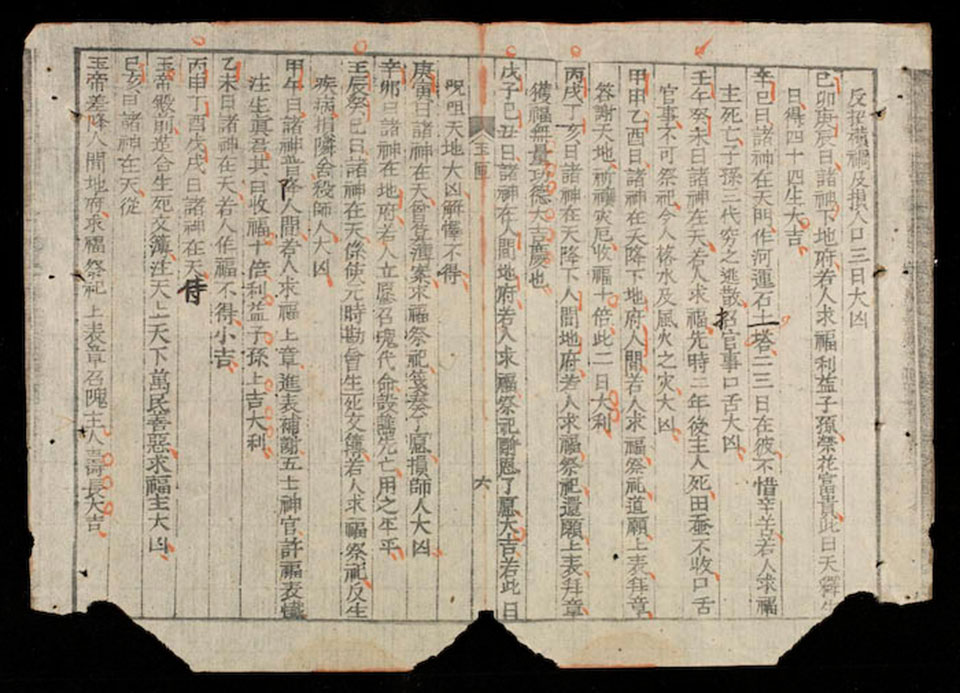 反招橫禍及損人口三日大凶
己卯庚辰日諸神下地府若人求福利益子孫榮花富貴此日天
日得四十四生大吉
辛巳日諸神在天門作河運石土塔二三日在彼不惜辛苦若人求福
主死亡子孫二代穷之逃散招官事口舌大凶
壬午癸未日諸神在天若人求福先時二年後主人死田蚕不收口舌
官事不可祭祀令人 水及風火之灾大凶
甲申乙酉日諸神在天降下地府人間若人求福祭祀道願上表拜章
答謝天地祈禳灾厄收福十倍此二日大利
丙戌丁亥日諸神在天降下人間地府若人求福祭祀還願上表拜章
獲福無量功德大吉慶也
戊子己丑日諸神在人間地府若人求福祭祀謝恩了愿大吉若此日
呪咀天地大凶解 不得
玉匣
六
庚寅日諸神在天曾 薄案求福祭祀 奏了愿損師人大凶
辛卯日諸神在地府若人立愿召魂代命設 先亡用之平平
壬辰癸巳日諸神在天條使元時勘會生死文簿若人求福祭祀反生
疾病損隣舍殺師人大凶
甲午日諸神普降下人間若人求福上章進表補謝五土神官許福表
注生真君共曰收福十倍利益子孫上吉大利
乙未日諸神在天若人作福不得小吉
丙申丁酉戊戌日諸神在天侍
玉帝殿前造合生死文簿注天上天下萬民善惡求福主大凶
己亥日諸神在天從
玉帝差降人間地府求福祭祀上表章召魂主人壽長大吉